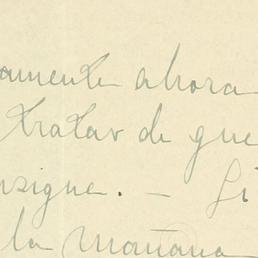 amente ahora
tratar de que
nsigne. – Si
la mañana